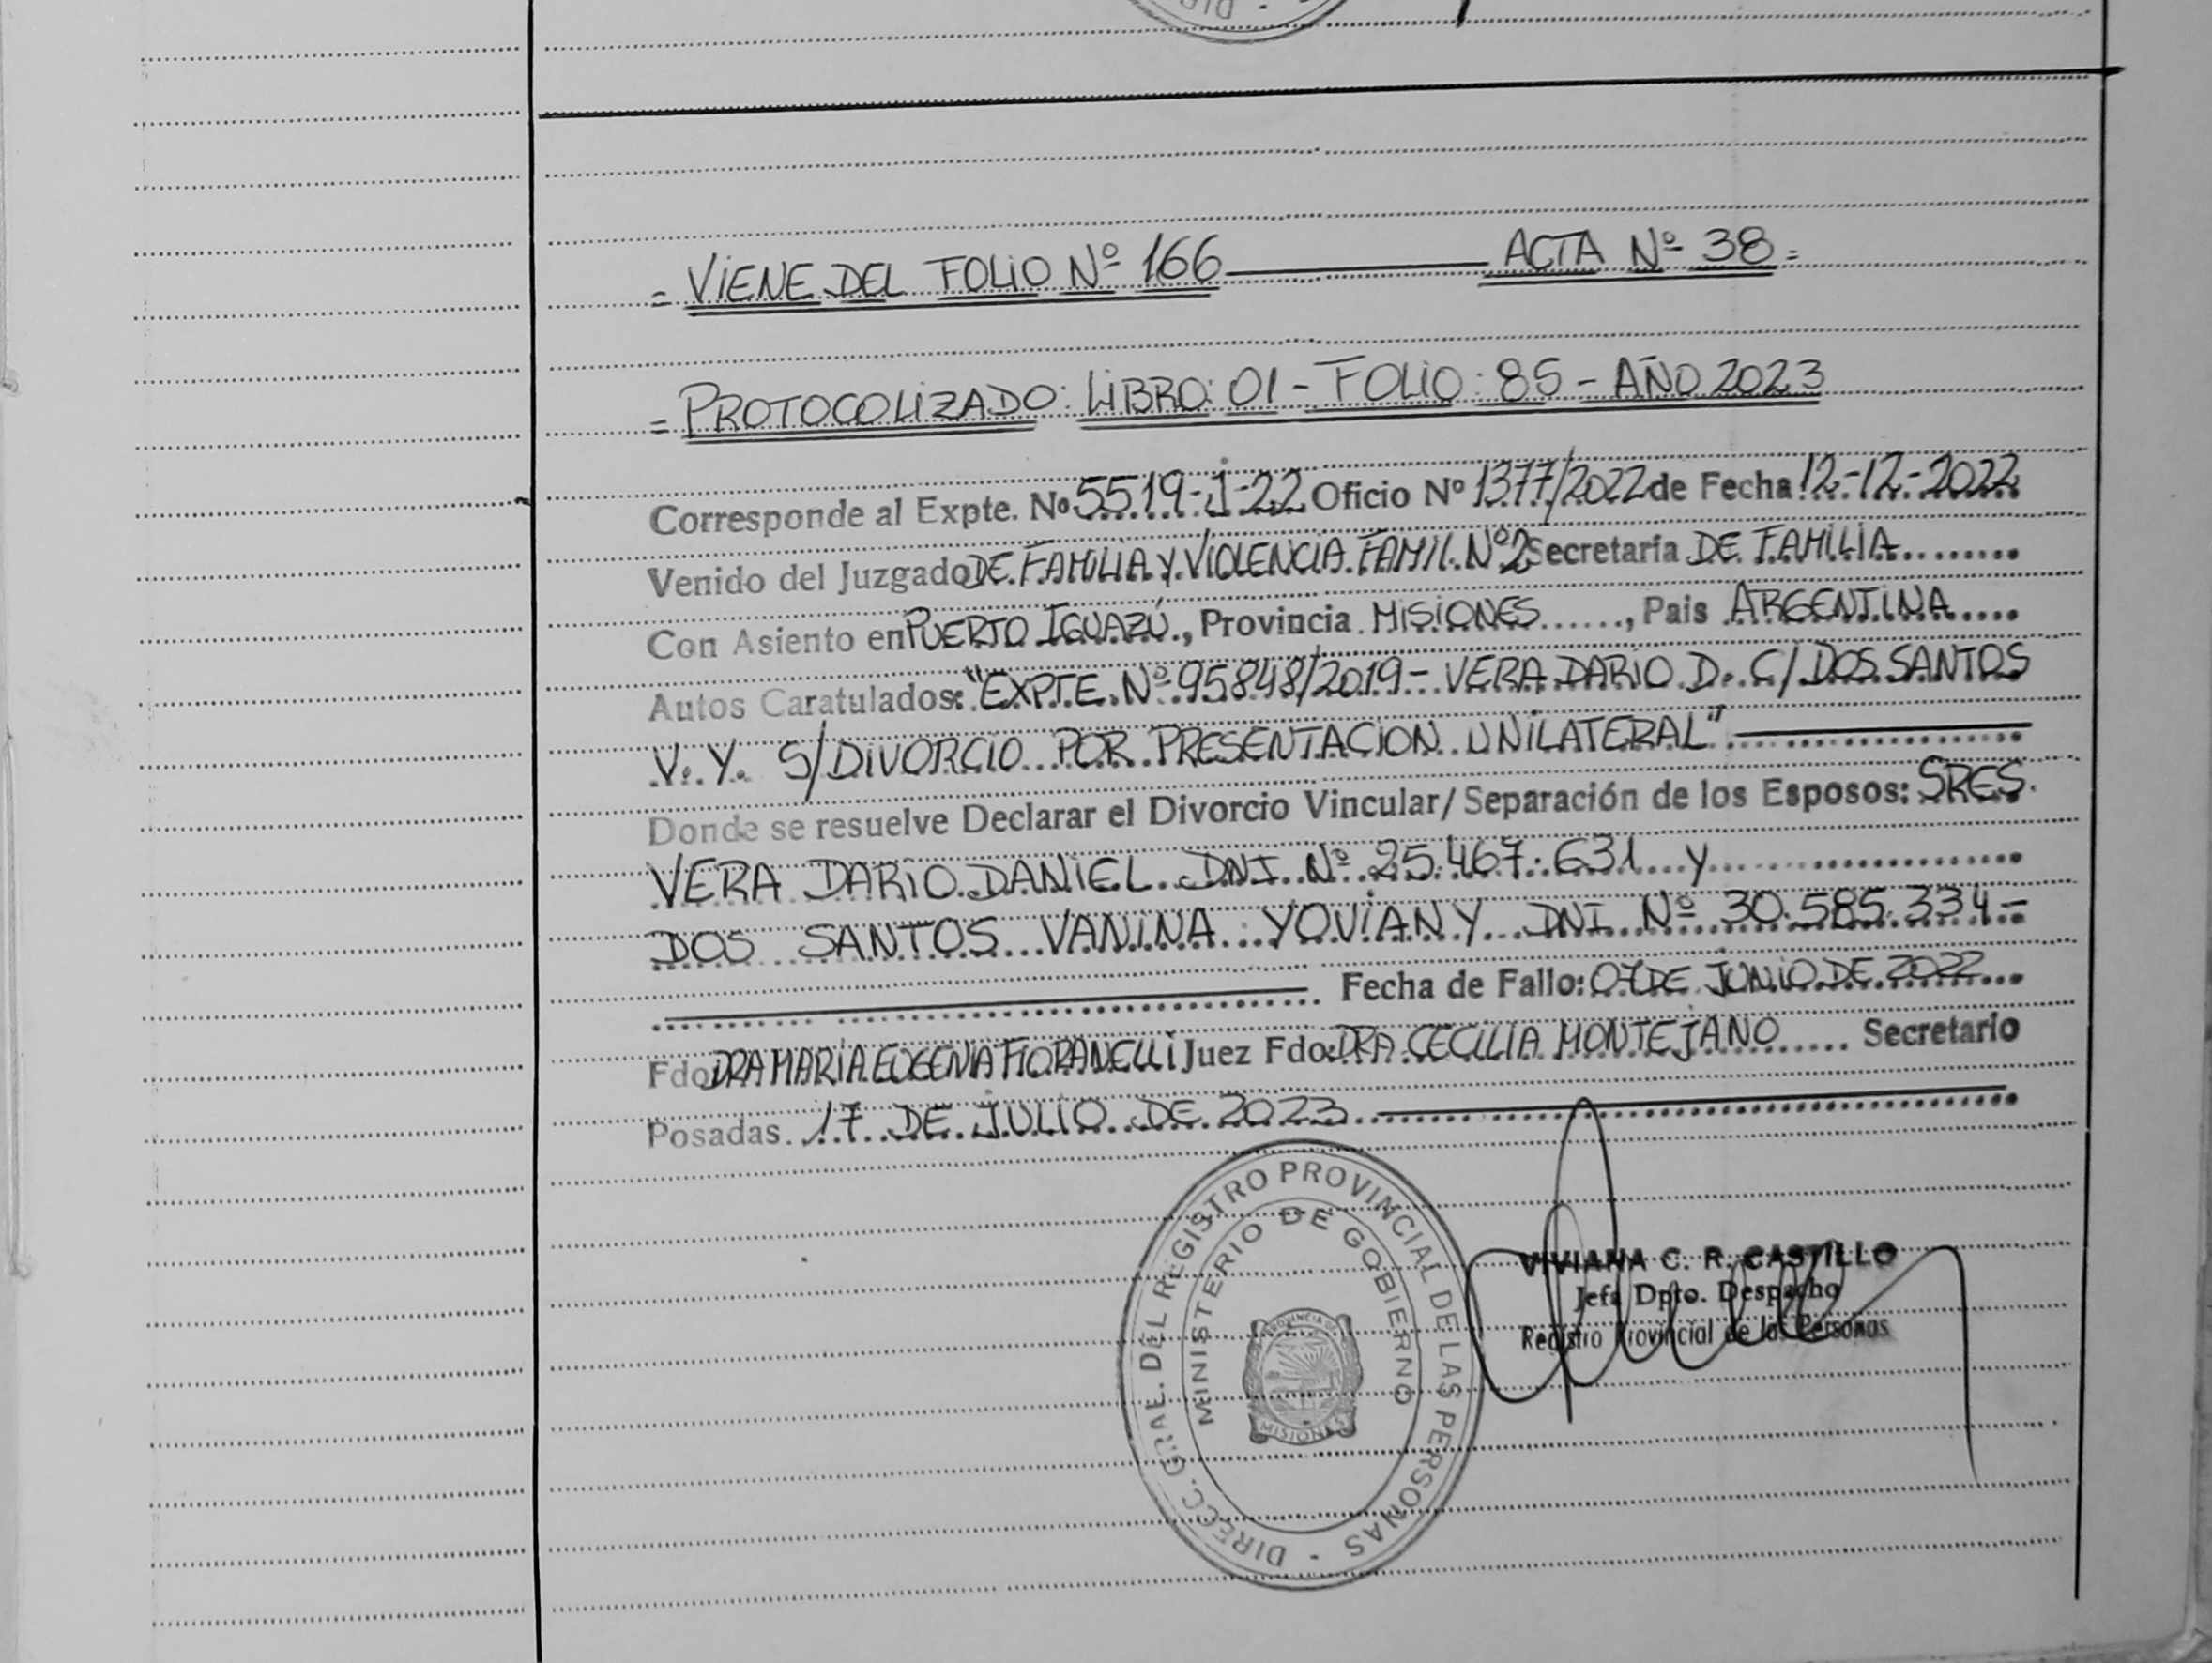 = VIENE DEL FOLIO Nº 166 ACTA Nº 38 =
= PROTOCOLIZADO: LIBRO: 01 - FOLIO: 85 - AÑO 2023
Corresponde al Expte. Nº 5519-J-22 Oficio Nº 1377/2022 de Fecha 12-12-2022
Venido del Juzgado DE FAMILIA Y VIOLENCIA FAMIL. Nº 2 Secretaría DE FAMILIA
Con Asiento en PUERTO IGUAZÚ, Provincia MISIONES, Pais ARGENTINA
Autos Caratulados: "EXPTE. Nº 95848/2019 - VERA DARIO D. C/ DOS SANTOS
V. Y. S/ DIVORCIO POR PRESENTACION UNILATERAL"
Donde se resuelve Declarar el Divorcio Vincular/Separación de los Esposos: SRES.
VERA DARIO DANIEL DNI Nº 25.467.631 y
DOS SANTOS VANINA YOVIANY DNI Nº 30.585.334 -
Fecha de Fallo: 07 DE JUNIO DE 2022
Fdo: DRA MARÍA EUGENIA FIORANELLI Juez Fdo: DRA CECILIA MONTEJANO Secretario
Posadas 17 DE JULIO DE 2023
DIRECC. GRAL. DEL REGISTRO PROVINCIAL DE LAS PERSONAS -
MINISTERIO DE GOBIERNO
PROVINCIA DE
MISIONES
VIVIANA C. R. CASTILLO
Jefa Dpto. Despacho
Registro Provincial de las Personas